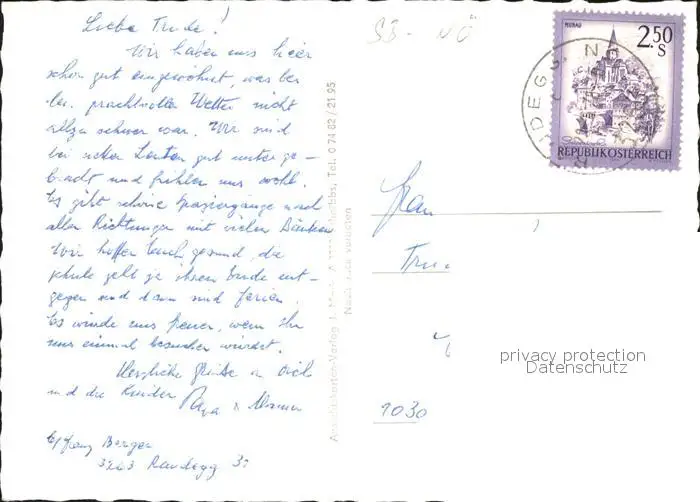 Liebe Trude!
Wir haben uns hier
schon gut eingewöhnt, was bei
den prachtvollen Wetter nicht
allzu schwer war. Wir sind
bei netten Leuten gut unterge-
bracht und fühlen uns wohl.
Es gibt schöne Spaziergänge nach
allen Richtungen mit vielen Bänken
Wir hoffen Euch gesund, die
Schule geht ja ihrem Ende ent-
gegen und dann sind Ferien.
Es würde uns freuen, wenn Ihr
uns einmal besuchen würdet.
Herzliche Grüße an Dich
und die Kinder
Papa & Mama
Franz Berger
3263 Randegg 31
Nach NÖ
Ansichtskarten-Verlag Tel. 0 74 82 / 21 95
MURAU
2.50
S
REPUBLIK ÖSTERREICH
Frau
Tru
1030
privacy protection
Datenschutz